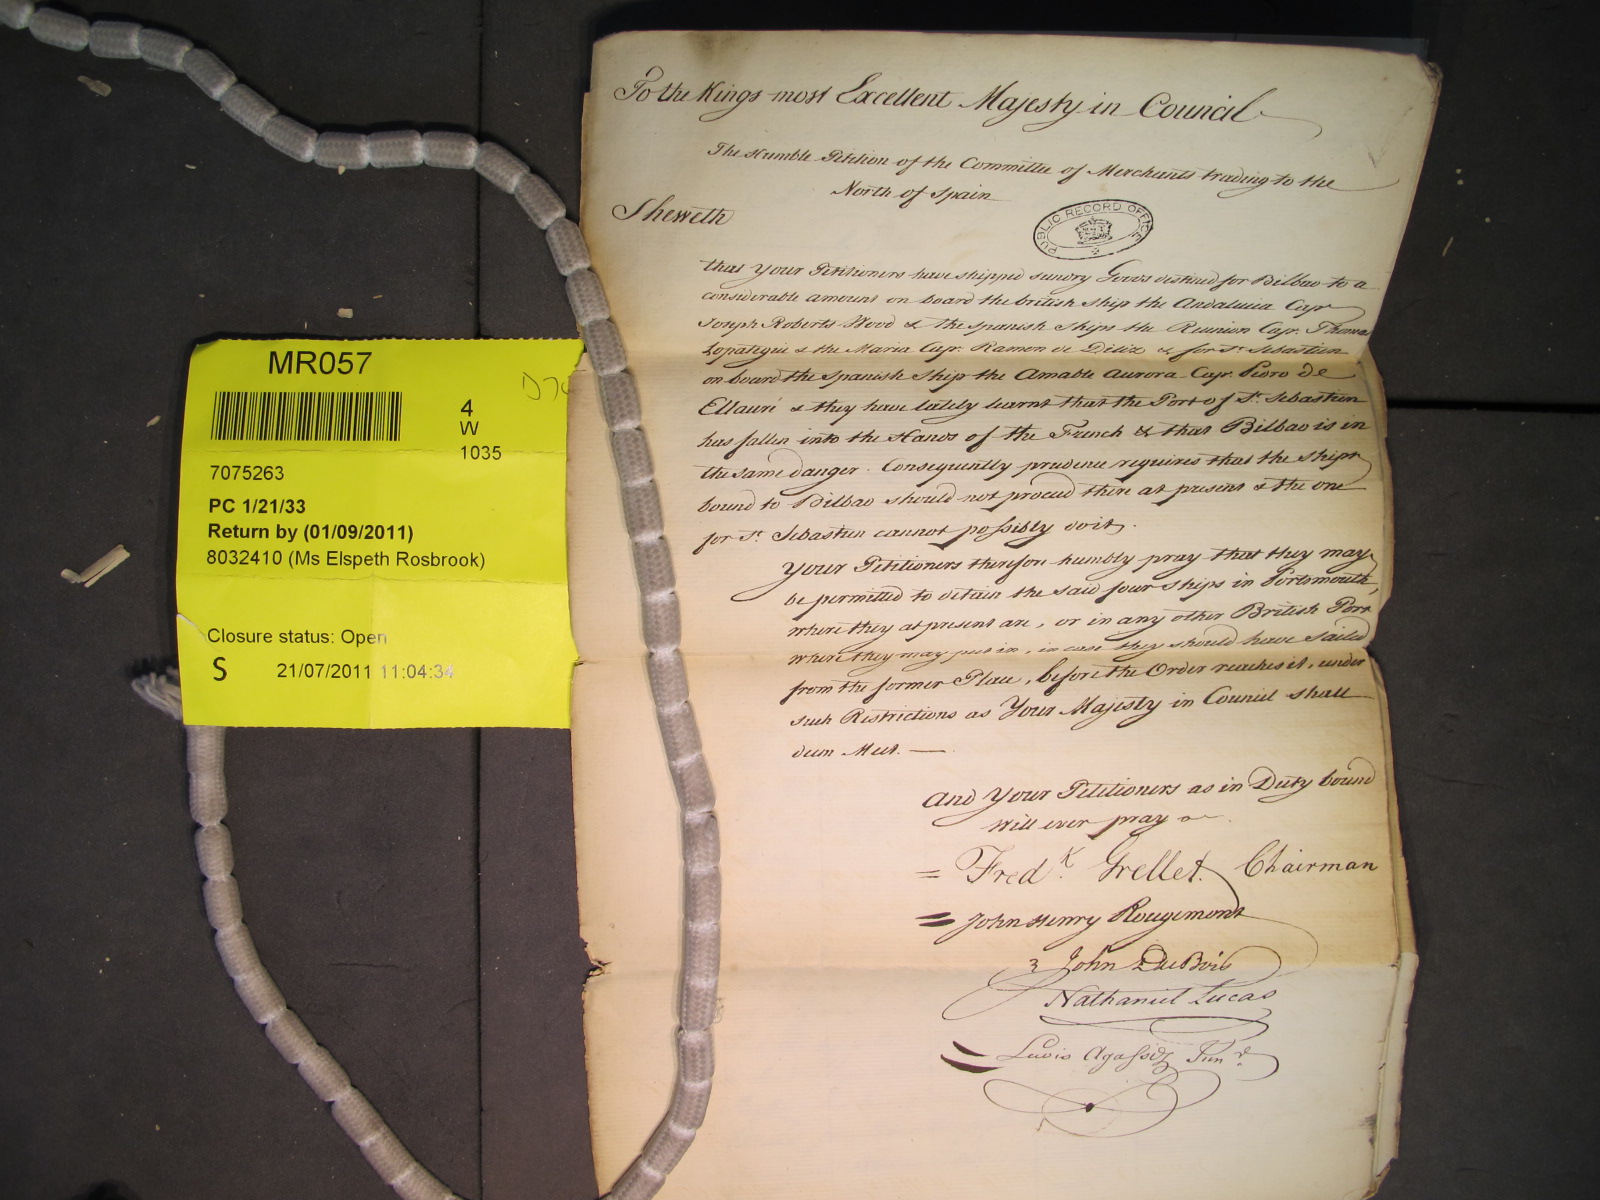 To the Kings most Excellent Majesty in Council
The Humble Petition of the Committee of Merchants trading to the
North of Spain
Sheweth
PUBLIC RECORD OFFICE
that Your Petitioners have shipped sundry Goods destined for Bilbao to a
considerable amount on board the british ship the Andalucia Capt
Joseph Roberts Wood & the spanish ships the Reunion Capt. Thomas
Lopategui & the Maria Capt. Ramon de Diliz & for St. Sebastien
on board the spanish ship the Amable Aurora Capt. Pedro de
Ellauri & they have lately learnt that the Port of St. Sebastien
has fallen into the Hands of the French & that Bilbao is in
the same danger. Consequently prudence requires that the ships
bound to Bilbao should not proceed there at present & the one
for St. Sebastien cannot possibly do it.
Your Petitioners therefore humbly pray that they may
be permitted to detain the said four ships in Portsmouth,
where they at present are, or in any other British Port
where they may put in, in case they should have sailed
from the former Place, before the Order reaches it, under
such Restrictions as Your Majesty in Council shall
deem Meet. —
And Your Petitioners as in Duty bound
will ever pray
Fredk. Grellet. Chairman
John Henry Rougemont
John DuBois
Nathaniel Lucas
Lewis Agassiz Junr.
MR057
4
W
1035
7075263
PC 1/21/33
Return by (01/09/2011)
8032410 (Ms Elspeth Rosbrook)
Closure status: Open
S 21/07/2011 11:04:34